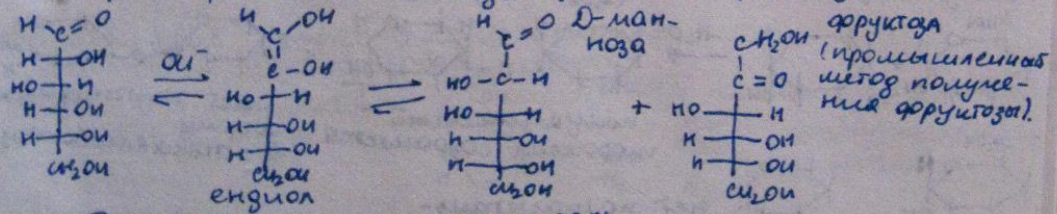 H O
C
H OH
HO H
H OH
H OH
CH₂OH
OH⁻
H OH
C
C-OH
HO H
H OH
H OH
CH₂OH
ендиол
H O
C
HO-C-H
HO H
H OH
H OH
CH₂OH
D-ман-
ноза
+
CH₂OH
C=O
HO H
H OH
H OH
CH₂OH
фруктоза
(промышленный
метод получе-
ния фруктозы).